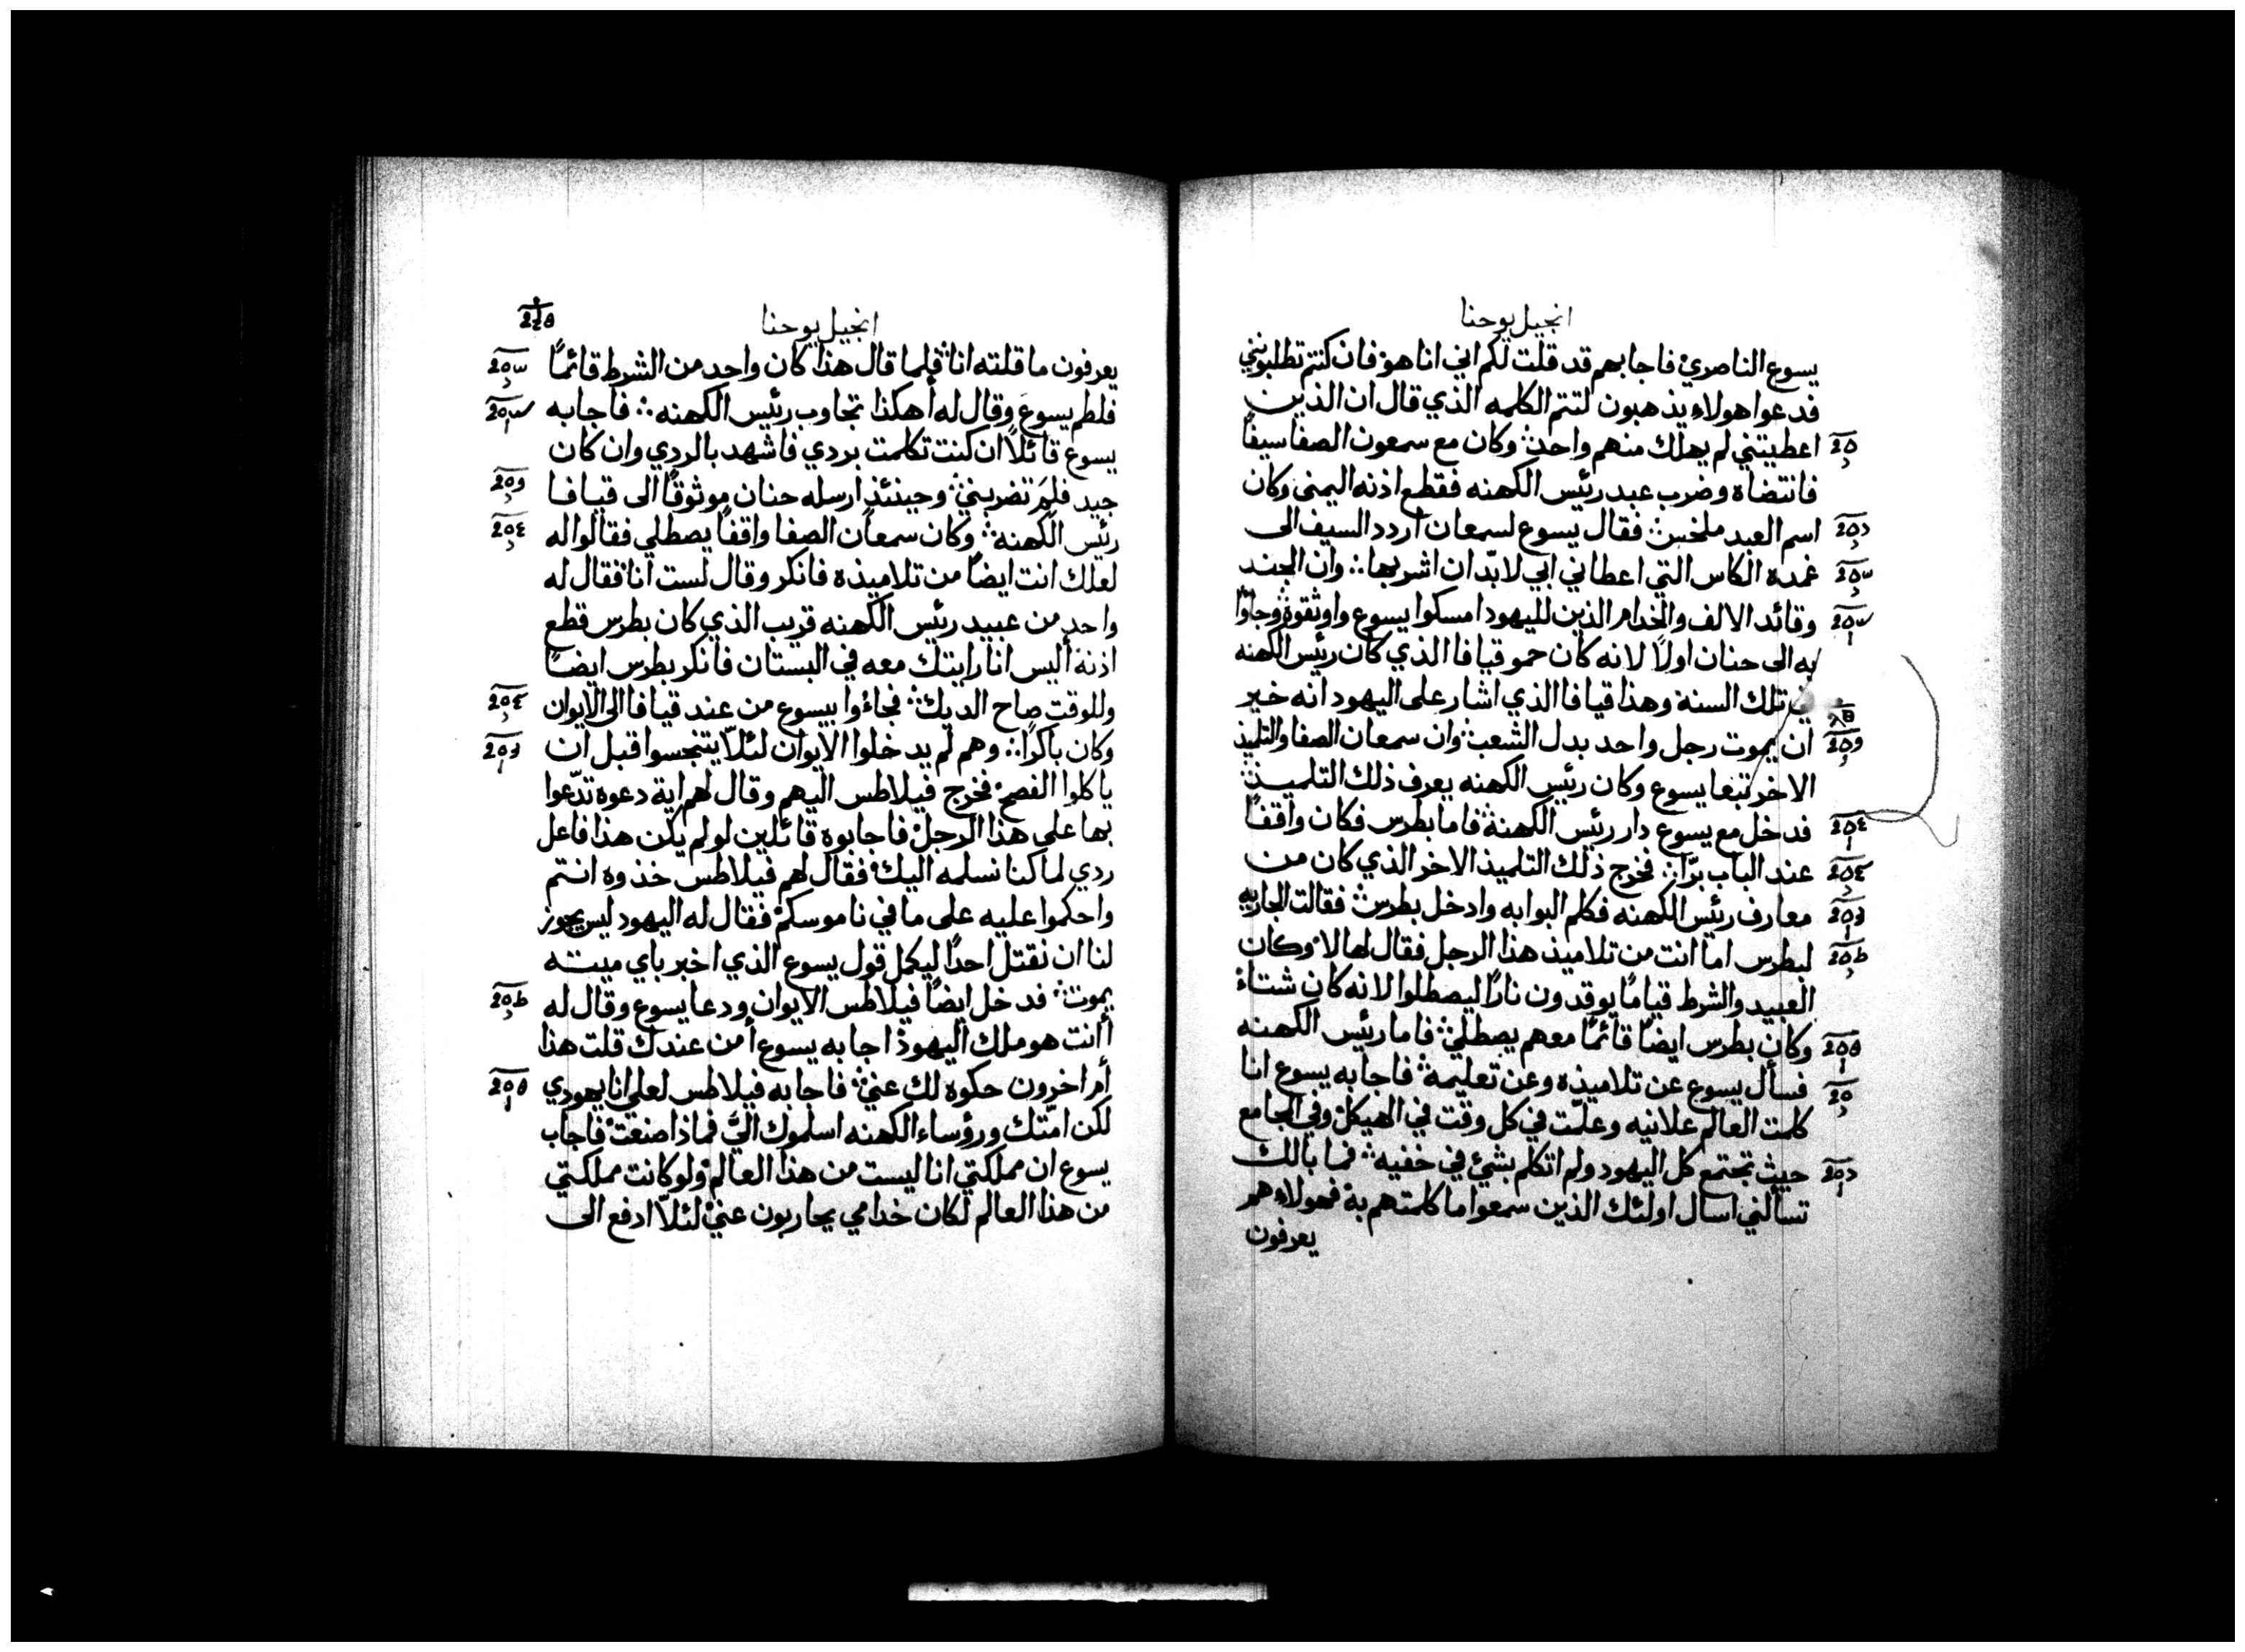 انجيل يوحنا
يسوع الناصري فاجابهم قد قلت لكم اني انا هو فان كنتم تطلبونني
فدعوا هولاء يذهبون لتتم الكلمه الذي قال ان الذين
اعطيتني لم يهلك منهم واحد وكان مع سمعون الصفا سيفاً
فانتضاه وضرب عبد رئيس الكهنه فقطع اذنه اليمنى وكان
اسم العبد ملخس فقال يسوع لسمعان اردد السيف الى
غمده الكاس التي اعطاني ابي لا بدّ ان اشربها وان الجند
وقائد الالف والخدام الذين لليهود امسكوا يسوع واوثقوه وجاؤا
به الى حنان اولاً لانه كان حمو قيافا الذي كان رئيس الكهنه
في تلك السنة وهذا قيافا الذي اشار على اليهود انه خير
ان يموت رجل واحد بدل الشعب وان سمعان الصفا والتلميذ
الاخر تبعا يسوع وكان رئيس الكهنه يعرف ذلك التلميذ
فدخل مع يسوع دار رئيس الكهنة فاما بطرس فكان واقفاً
عند الباب برّا فخرج ذلك التلميذ الاخر الذي كان من
معارف رئيس الكهنه فكلم البوابه وادخل بطرس فقالت الجاريه
لبطرس اما انت من تلاميذ هذا الرجل فقال لها لا وكان
العبيد والشرط قياماً يوقدون ناراً ليصطلوا لانه كان شتاء
وكان بطرس ايضاً قائماً معهم يصطلي فاما رئيس الكهنه
فسأل يسوع عن تلاميذه وعن تعليمه فاجابه يسوع انا
كلمت العالم علانيه وعلّمت في كل وقت في الهيكل وفي المجامع
حيث تجتمع كل اليهود ولم اتكلم بشئ في خفيه فما بالك
تسألني اسال اولئك الذين سمعوا ما كلمتهم به فهولاء هم
يعرفون
انجيل يوحنا
يعرفون ما قلته انا فلما قال هذا كان واحد من الشرط قائماً
فلطم يسوع وقال له أهكذا تجاوب رئيس الكهنه فاجابه
يسوع قائلاً ان كنت تكلمت بردي فاشهد بالردي وان كان
جيد فلِمَ تضربني وحينئذ ارسله حنان موثوقاً الى قيافا
رئيس الكهنه وكان سمعان الصفا واقفاً يصطلي فقالوا له
لعلك انت ايضاً من تلاميذه فانكر وقال لست انا فقال له
واحد من عبيد رئيس الكهنه قريب الذي كان بطرس قطع
اذنه أليس انا رايتك معه في البستان فانكر بطرس ايضاً
وللوقت صاح الديك فجاءُوا بيسوع من عند قيافا الى الايوان
وكان باكراً وهم لم يدخلوا الايوان لئلاّ يتنجسوا قبل ان
ياكلوا الفصح فخرج فيلاطس اليهم وقال لهم اية دعوه تدّعوا
بها على هذا الرجل فاجابوه قائلين لو لم يكن هذا فاعل
ردي لما كنا نسلمه اليك فقال لهم فيلاطس خذوه انتم
واحكموا عليه على ما في ناموسكم فقال له اليهود ليس يجوز
لنا ان نقتل احداً ليكمل قول يسوع الذي اخبر باي ميته
يموت فدخل ايضاً فيلاطس الايوان ودعا يسوع وقال له
أانت هو ملك اليهود اجابه يسوع أمن عندك قلت هذا
أم اخرون حكوه لك عني فاجابه فيلاطس لعلي انا يهودي
لكن امّتك ورؤساء الكهنه اسلموك اليَّ فماذا صنعت فاجاب
يسوع ان مملكتي انا ليست من هذا العالم ولو كانت مملكتي
من هذا العالم لكان خدامي يحاربون عني لئلاّ ادفع الى